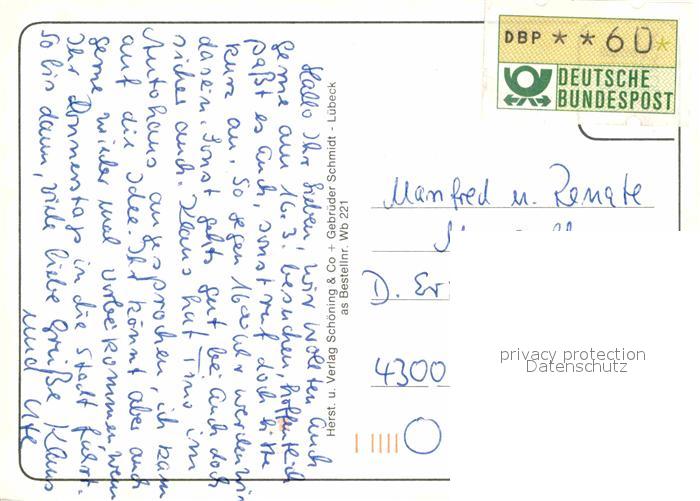 DBP * * 60 *
DEUTSCHE
BUNDESPOST
Hallo Ihr Lieben, wir wollten Euch
gerne am 16.3. besuchen, hoffentlich
paßt es Euch, sonst ruf doch bitte
kurz an. So gegen 16 Uhr werden wir
da sein. Sonst geht's gut bei Euch doch
sicher auch. Klaus hat im
Autohaus angesprochen, ich kam
auf die Idee. Ihr könnt aber auch
gerne wieder mal vorbei kommen wenn
Ihr Donnerstags in die Stadt fährt.
So bis dann, viele liebe Grüße Klaus
und Ute
Herst. u. Verlag Schöning & Co + Gebrüder Schmidt - Lübeck
as Bestellnr. Wb 221
Manfred u. Renate
D. Er
4300
privacy protection
Datenschutz